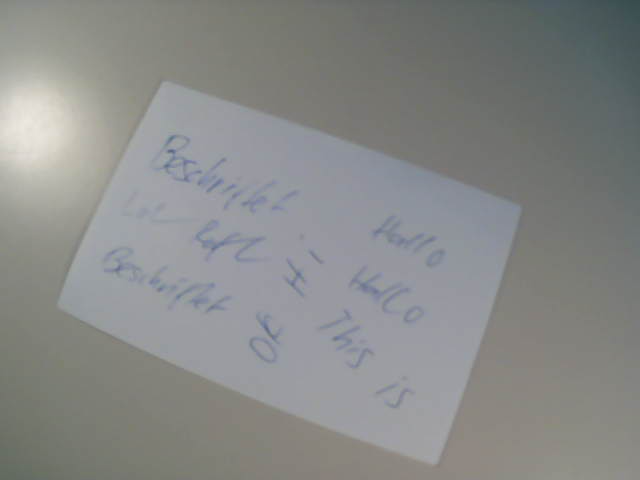 Beschriftet Hallo
Lol Rofl Hallo
Beschriftet This is